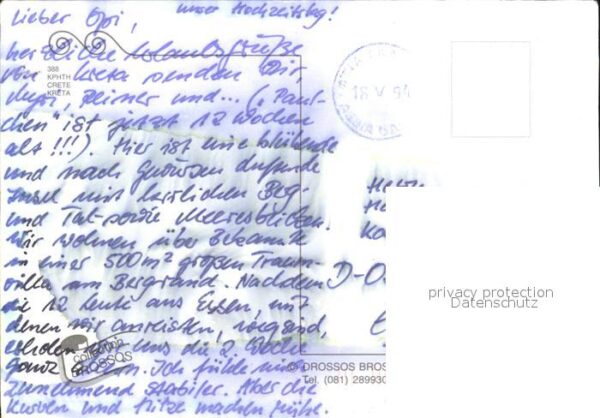 unser Hochzeitstag!
Lieber Opi,
herzliche Urlaubsgrüße
von Kreta senden Dir
Reiner und... („Paul-
chen" ist jetzt 12 Wochen
alt!!!). Hier ist eine blühende
und nach Gewürzen duftende
Insel mit herrlichen Berg-
und Tal- sowie Meeresblicken.
Wir wohnen über Bekannte
in einer 500m² großen Traum-
villa am Bergrand. Nachdem
die 12 Leute aus Essen, mit
denen wir anreisten,
uns die 2. Woche
ganz Ich fühle mich
zunehmend stabiler. Aber die
Kurven und Hitze machen Mühe.
388
ΚΡΗΤΗ
CRETE
KRETA
18 V 94
D-0
privacy protection
Datenschutz
collection
DROSSOS
© DROSSOS BROS
Tel. (081) 289930